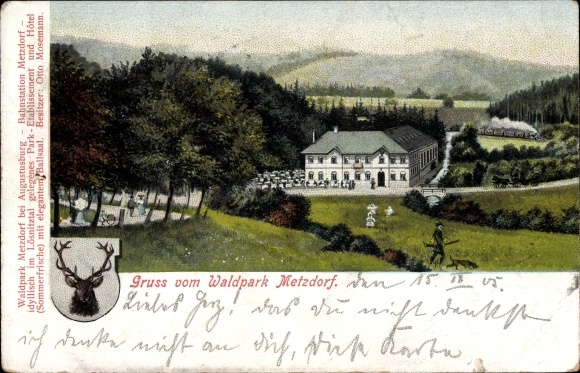 Waldpark Metzdorf bei Augustusburg – Bahnstation Metzdorf –
Idyllisch im Lösnitztal gelegenes Park-Etablissement und Hôtel
(Sommerfrische) mit elegantem Ballsaal. Besitzer: Otto Mosemann.
Gruss vom Waldpark Metzdorf. den 15. 05.
Liebes Herz! das du nicht denkst
ich denke nicht an dich, diese Karte